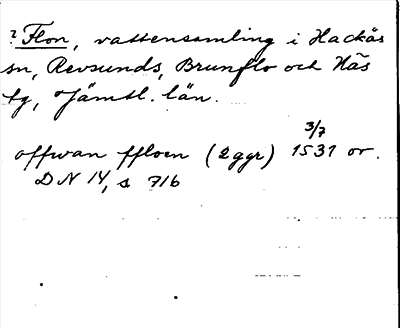 ? Flon, vattensamling i Hackås
sn, Revsunds, Brunflo och Näs
tg, Jämtl. län.
3/7
offwan ffloen (2 ggr) 1531 or.
DN 14, s 716